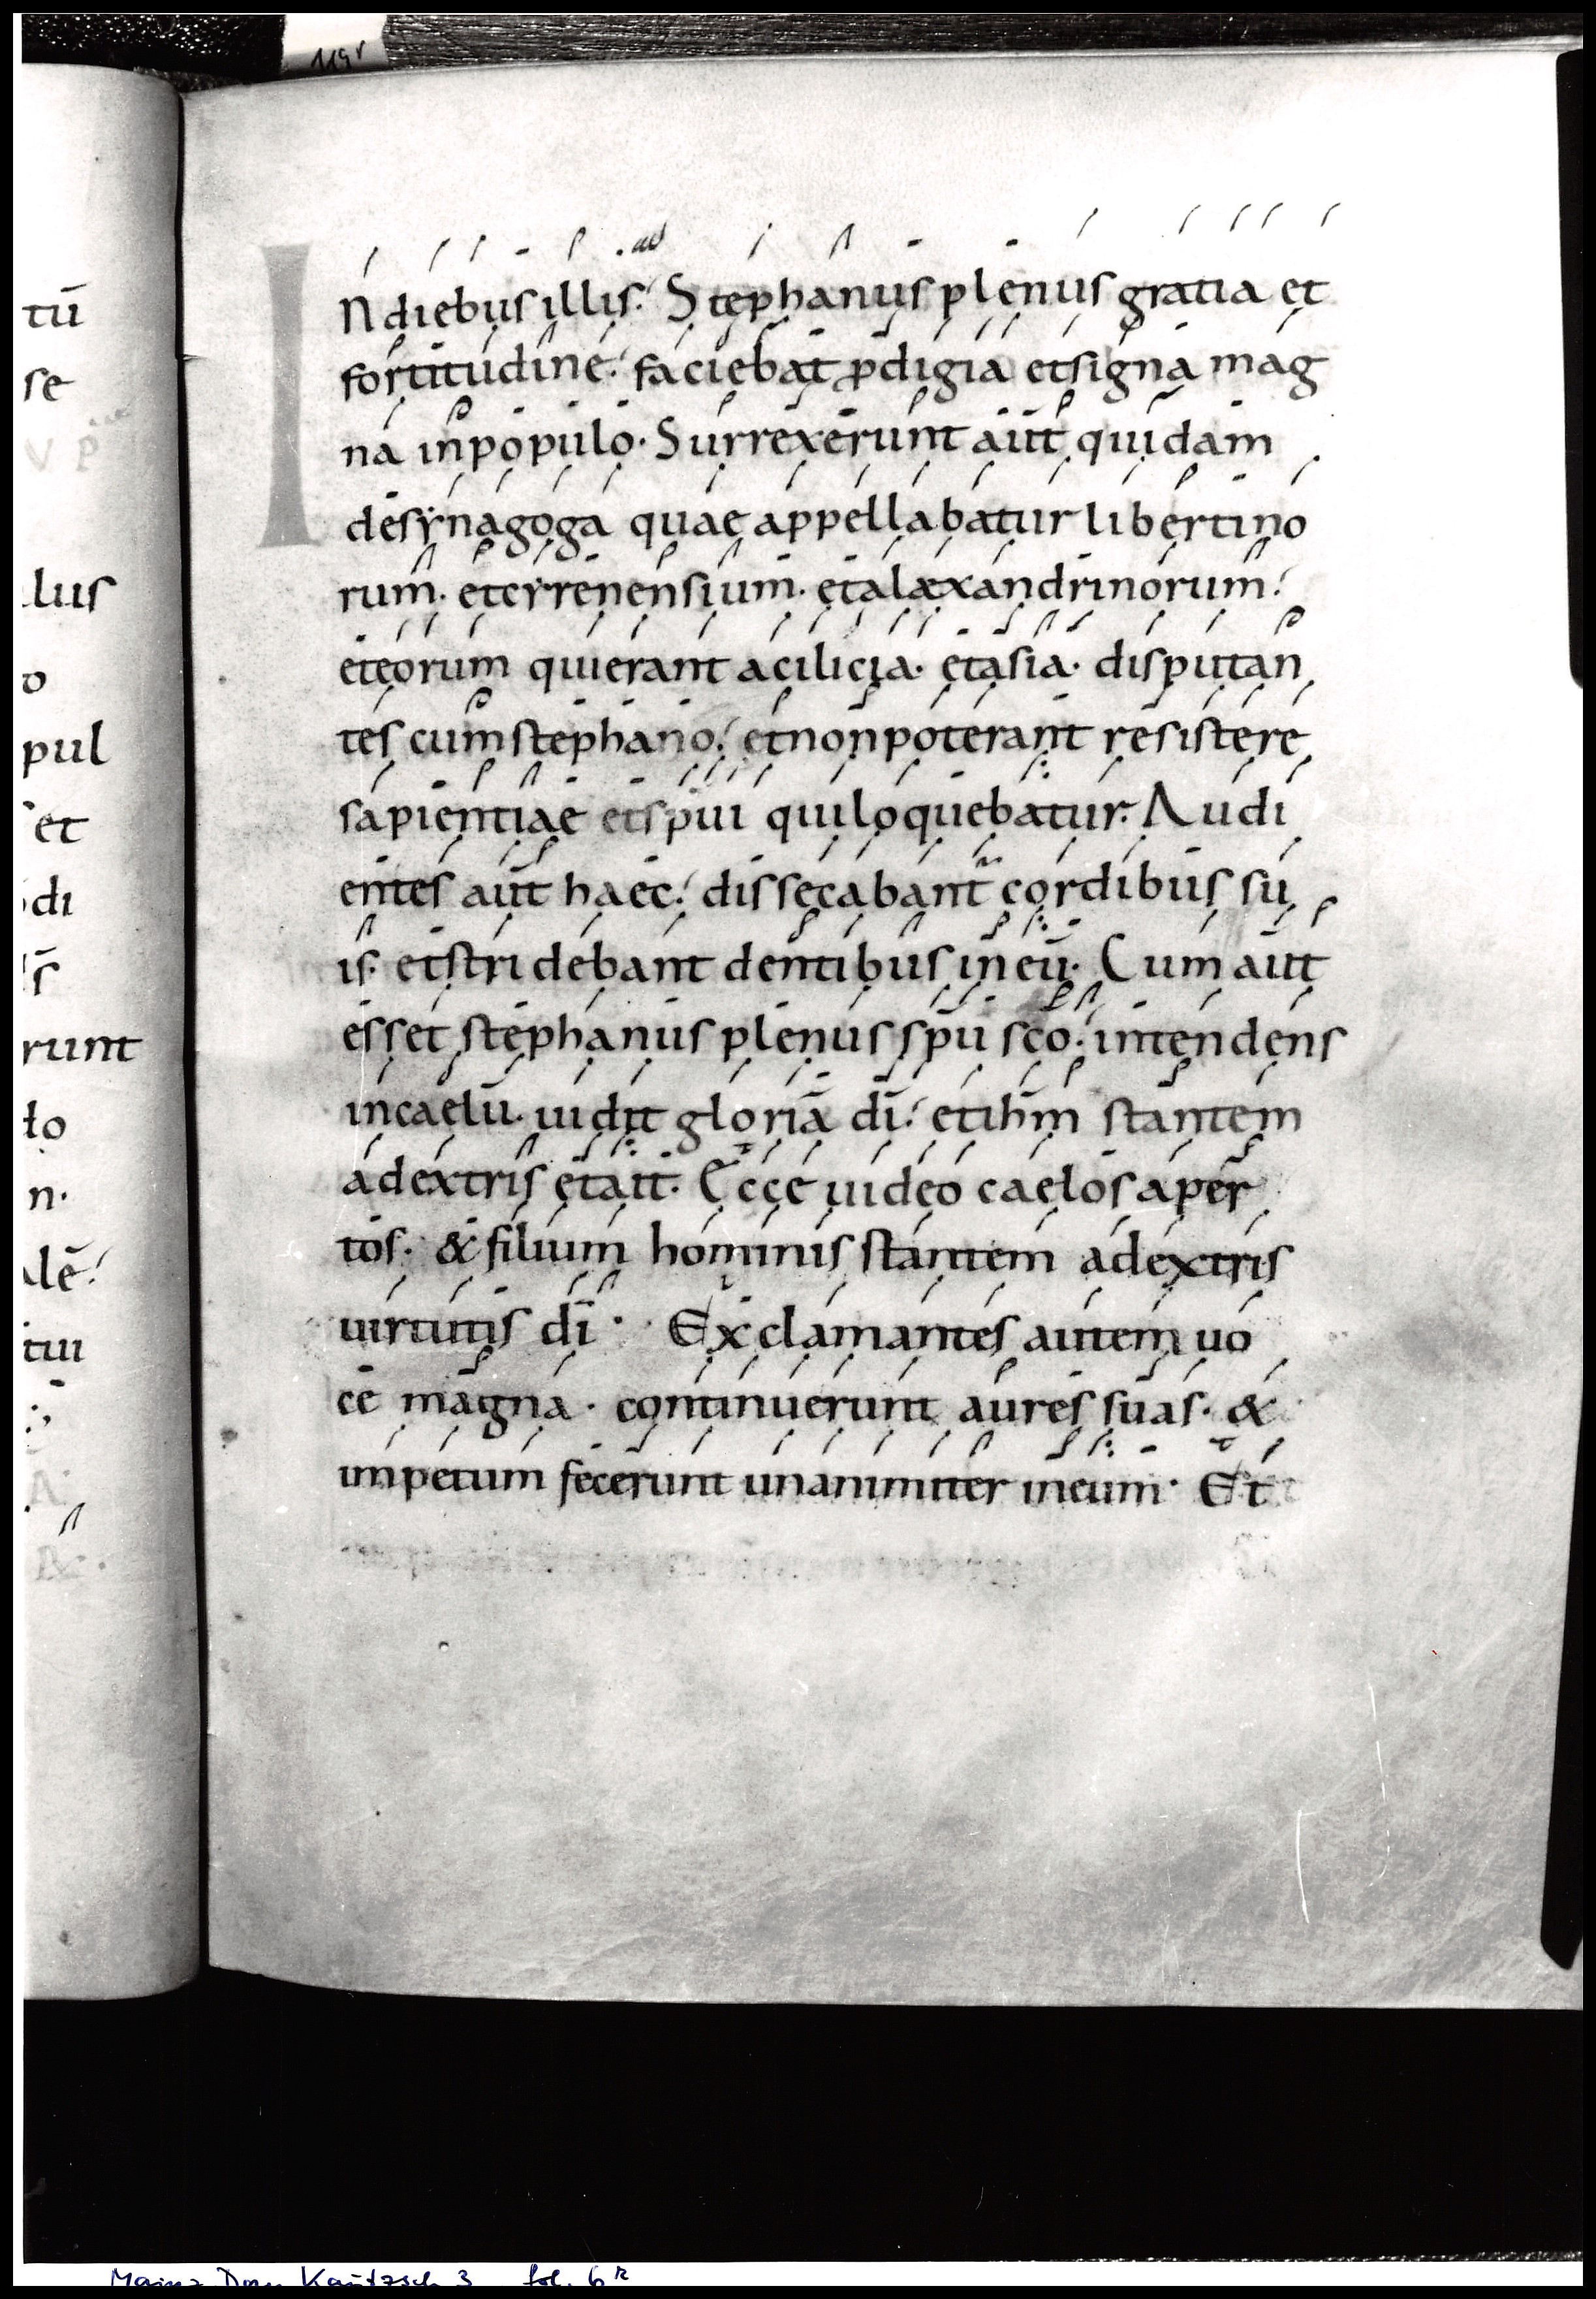 119r
tū
se
lus
o
pul
et
di
s̄
runt
do
n·
lē
tui
IN diebus illis. Stephanus plenus gratia et
fortitudine. faciebat ꝓdigia et signa mag
na in populo. Surrexerunt aūt quidam
de synagoga quae appellabatur libertino
rum. et cyrrenensium. et alaexandrinorum.
et eorum qui erant a cilicia. et asia. disputan
tes cum stephano. et non poterant resistere
sapientiae et sp̄ui qui loquebatur. Audi
entes aūt haec. dissecabant̃ cordibus su
is. et stridebant dentibus in eū. Cum aūt
esset stephanus plenus sp̄u sc̄o. intendens
in caelū. uidit gloriā dī. et ih̄m stantem
a dextris et ait. Ecce uideo caelos aper
tos. & filium hominis stantem a dextris
uirtutis dī. Exclamantes autem uo
ce magna. continuerunt aures suas. &
impetum fecerunt unanimiter in eum. Et
Mainz Dom Kautzsch 3 fol. 6 R